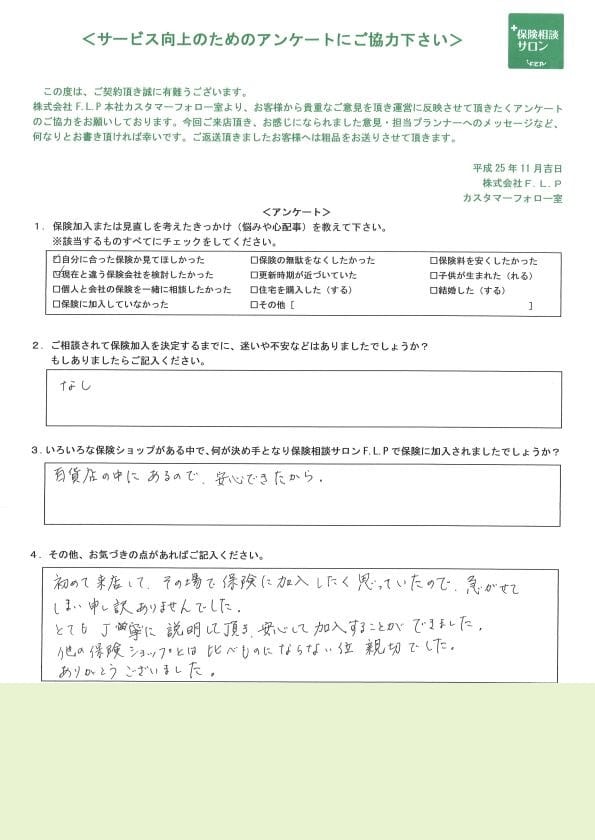 ＜サービス向上のためのアンケートにご協力下さい＞
保険相談
サロン
F.L.P
この度は、ご契約頂き誠に有難うございます。
株式会社Ｆ.Ｌ.Ｐ本社カスタマーフォロー室より、お客様から貴重なご意見を頂き運営に反映させて頂きたくアンケート
のご協力をお願いしております。今回ご来店頂き、お感じになられました意見・担当プランナーへのメッセージなど、
何なりとお書き頂ければ幸いです。ご返送頂きましたお客様へは粗品をお送りさせて頂きます。
平成 25 年 11 月吉日
株式会社Ｆ.Ｌ.Ｐ
カスタマーフォロー室
＜アンケート＞
１．保険加入または見直しを考えたきっかけ（悩みや心配事）を教えて下さい。
※該当するものすべてにチェックをしてください。
☑自分に合った保険か見てほしかった □保険の無駄をなくしたかった □保険料を安くしたかった
☑現在と違う保険会社を検討したかった □更新時期が近づいていた □子供が生まれた（れる）
□個人と会社の保険を一緒に相談したかった □住宅を購入した（する） □結婚した（する）
□保険に加入していなかった □その他［ ］
２．ご相談されて保険加入を決定するまでに、迷いや不安などはありましたでしょうか？
もしありましたらご記入ください。
なし
３．いろいろな保険ショップがある中で、何が決め手となり保険相談サロンＦ.Ｌ.Ｐで保険に加入されましたでしょうか？
百貨店の中にあるので、安心できたから。
４．その他、お気づきの点があればご記入ください。
初めて来店して、その場で保険に加入したく思っていたので、急がせて
しまい申し訳ありませんでした。
とても丁寧に説明して頂き、安心して加入することができました。
他の保険ショップとは比べものにならない位親切でした。
ありがとうございました。